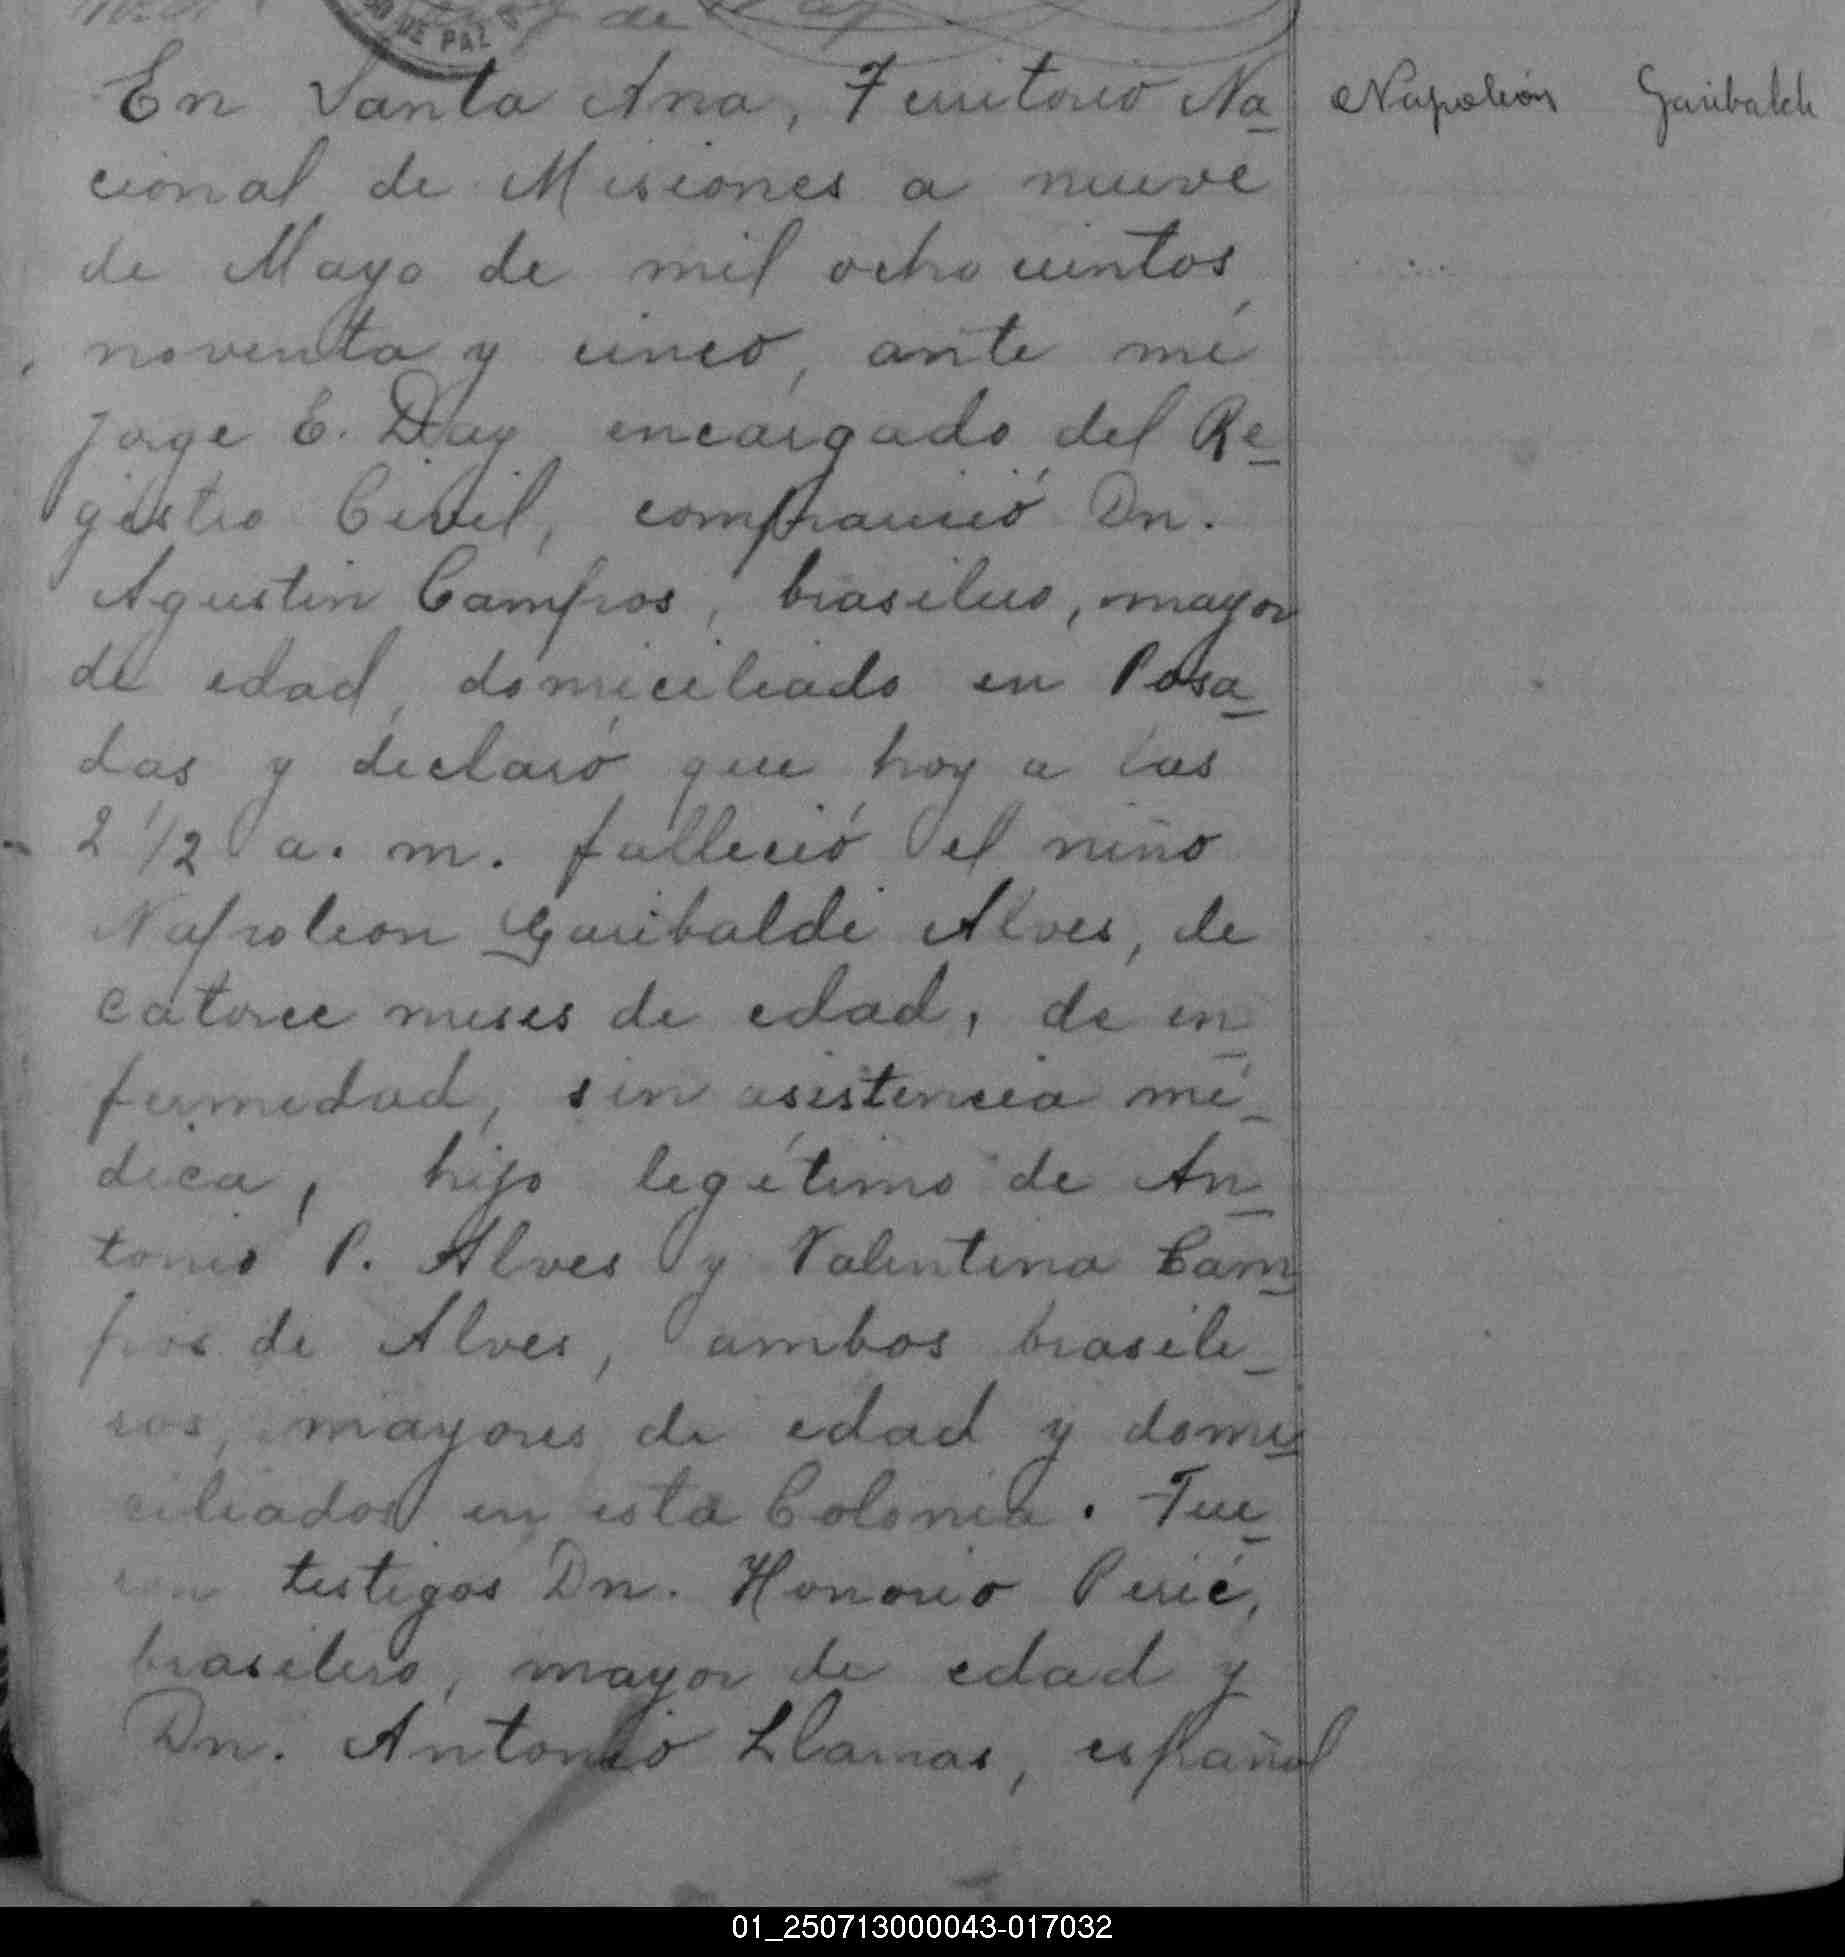 DE PAZ
En Santa Ana, Territorio Na
cional de Misiones a nueve
de Mayo de mil ochocientos
noventa y cinco, ante mí
Jorge E. Day encargado del Re
gistro Civil, compareció Dn.
Agustin Campos, brasilero, mayor
de edad, domiciliado en Posa
das y declaró que hoy a las
2 1/2 a. m. falleció el niño
Napoleon Garibaldi Alves, de
catorce meses de edad, de en
fermedad, sin asistencia mé
dica, hijo legítimo de An
tonio P. Alves y Valentina Cam
pos de Alves, ambos brasile
ros, mayores de edad y domi
ciliados en esta Colonia. Fue
ron testigos Dn. Honorio Perié,
brasilero, mayor de edad y
Dn. Antonio Llamas, español
Napoleón Garibaldi
01_250713000043-017032